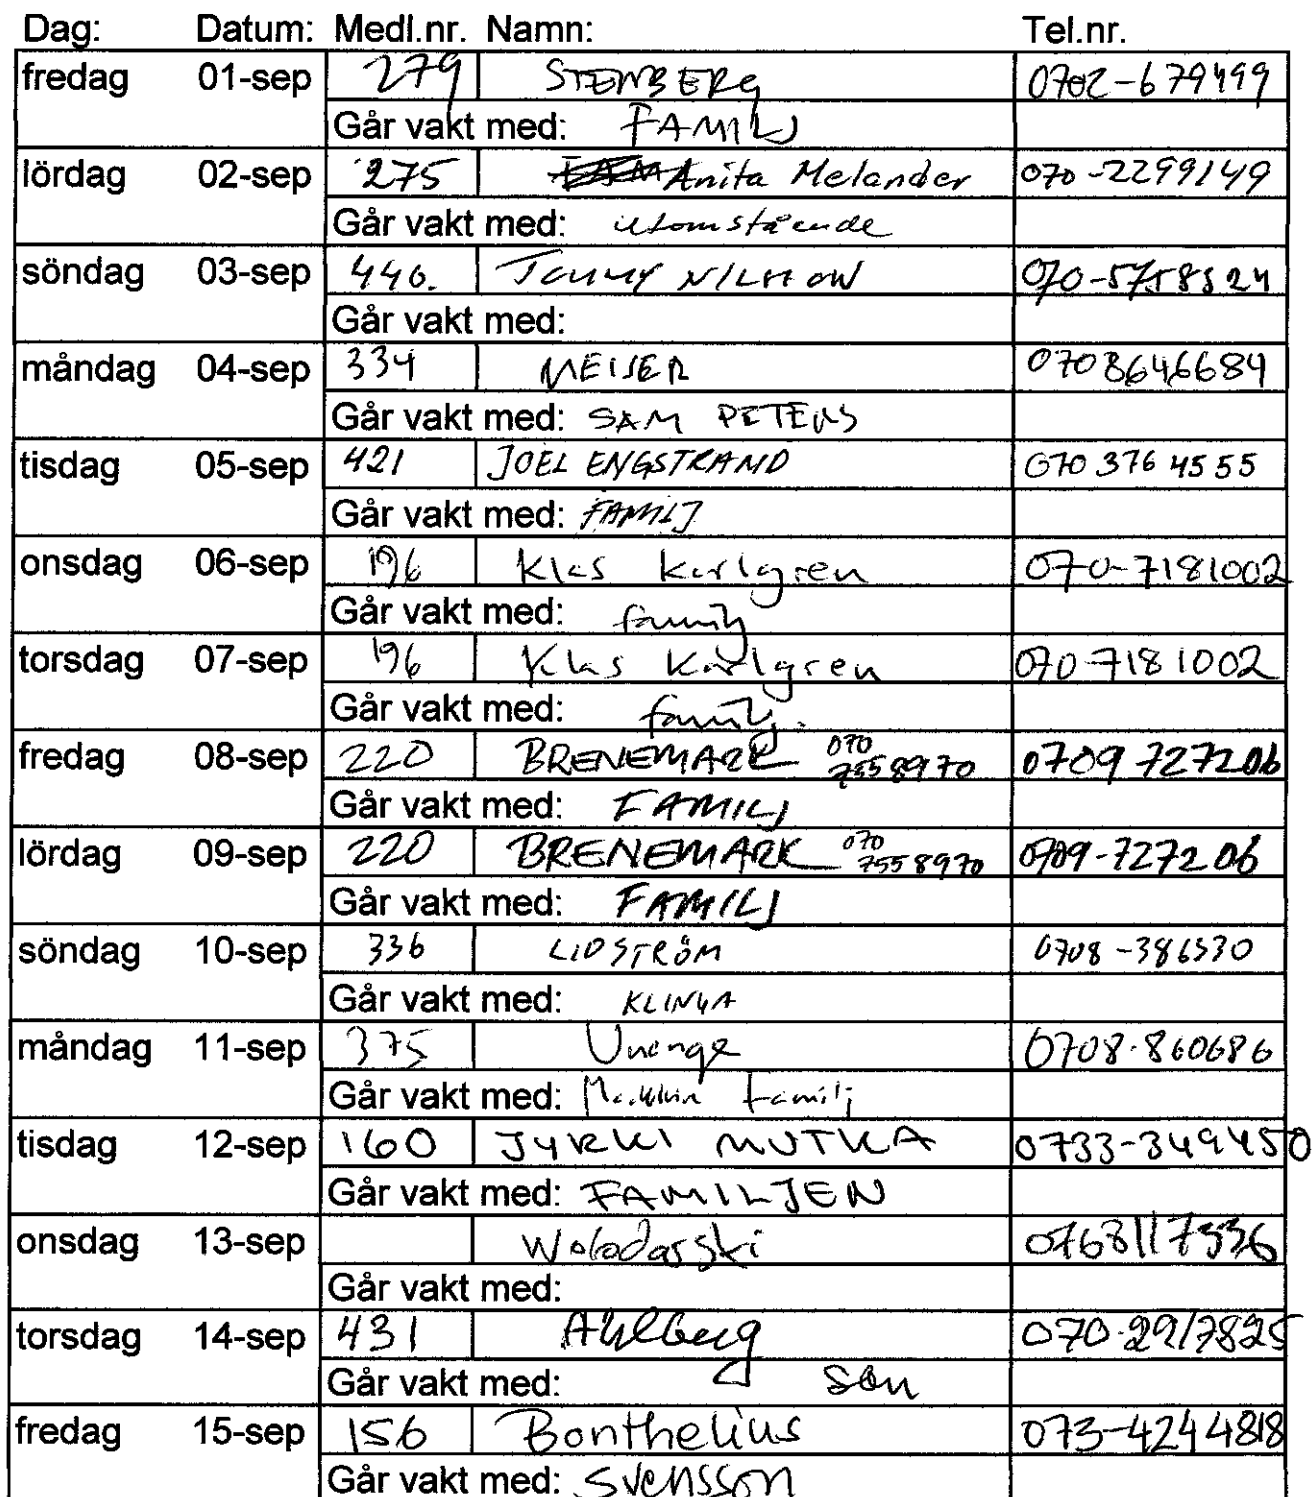 Dag: Datum: Medl.nr. Namn: Tel.nr.
fredag 01-sep 279 STENBERG 0702-679499
Går vakt med: FAMILJ
lördag 02-sep 275 Anita Melander 070-2299149
Går vakt med: utomstående
söndag 03-sep 440. 
Går vakt med:
måndag 04-sep 334 MEIJER 0708646684
Går vakt med: SAM PETERS
tisdag 05-sep 421 JOEL ENGSTRAND 070 376 4555
Går vakt med: FAMILJ
onsdag 06-sep 196 Klas Karlgren 070-7181002
Går vakt med: familj
torsdag 07-sep 196 Klas Karlgren 070-7181002
Går vakt med: familj.
fredag 08-sep 220 BRENEMARK 070 7558970 0709 727206
Går vakt med: FAMILJ
lördag 09-sep 220 BRENEMARK 070 7558970 0709-727206
Går vakt med: FAMILJ
söndag 10-sep 336 LIDSTRÖM 0708-386530
Går vakt med: KLINGA
måndag 11-sep 375 Unenge 0708-860686
Går vakt med: Familj
tisdag 12-sep 160 JYRKI MUTKA 0733-349450
Går vakt med: FAMILJEN
onsdag 13-sep Wolodarski 0768117336
Går vakt med:
torsdag 14-sep 431 Ahlberg 070-2917825
Går vakt med: Son
fredag 15-sep 156 Bonthelius 073-4244818
Går vakt med: Svensson